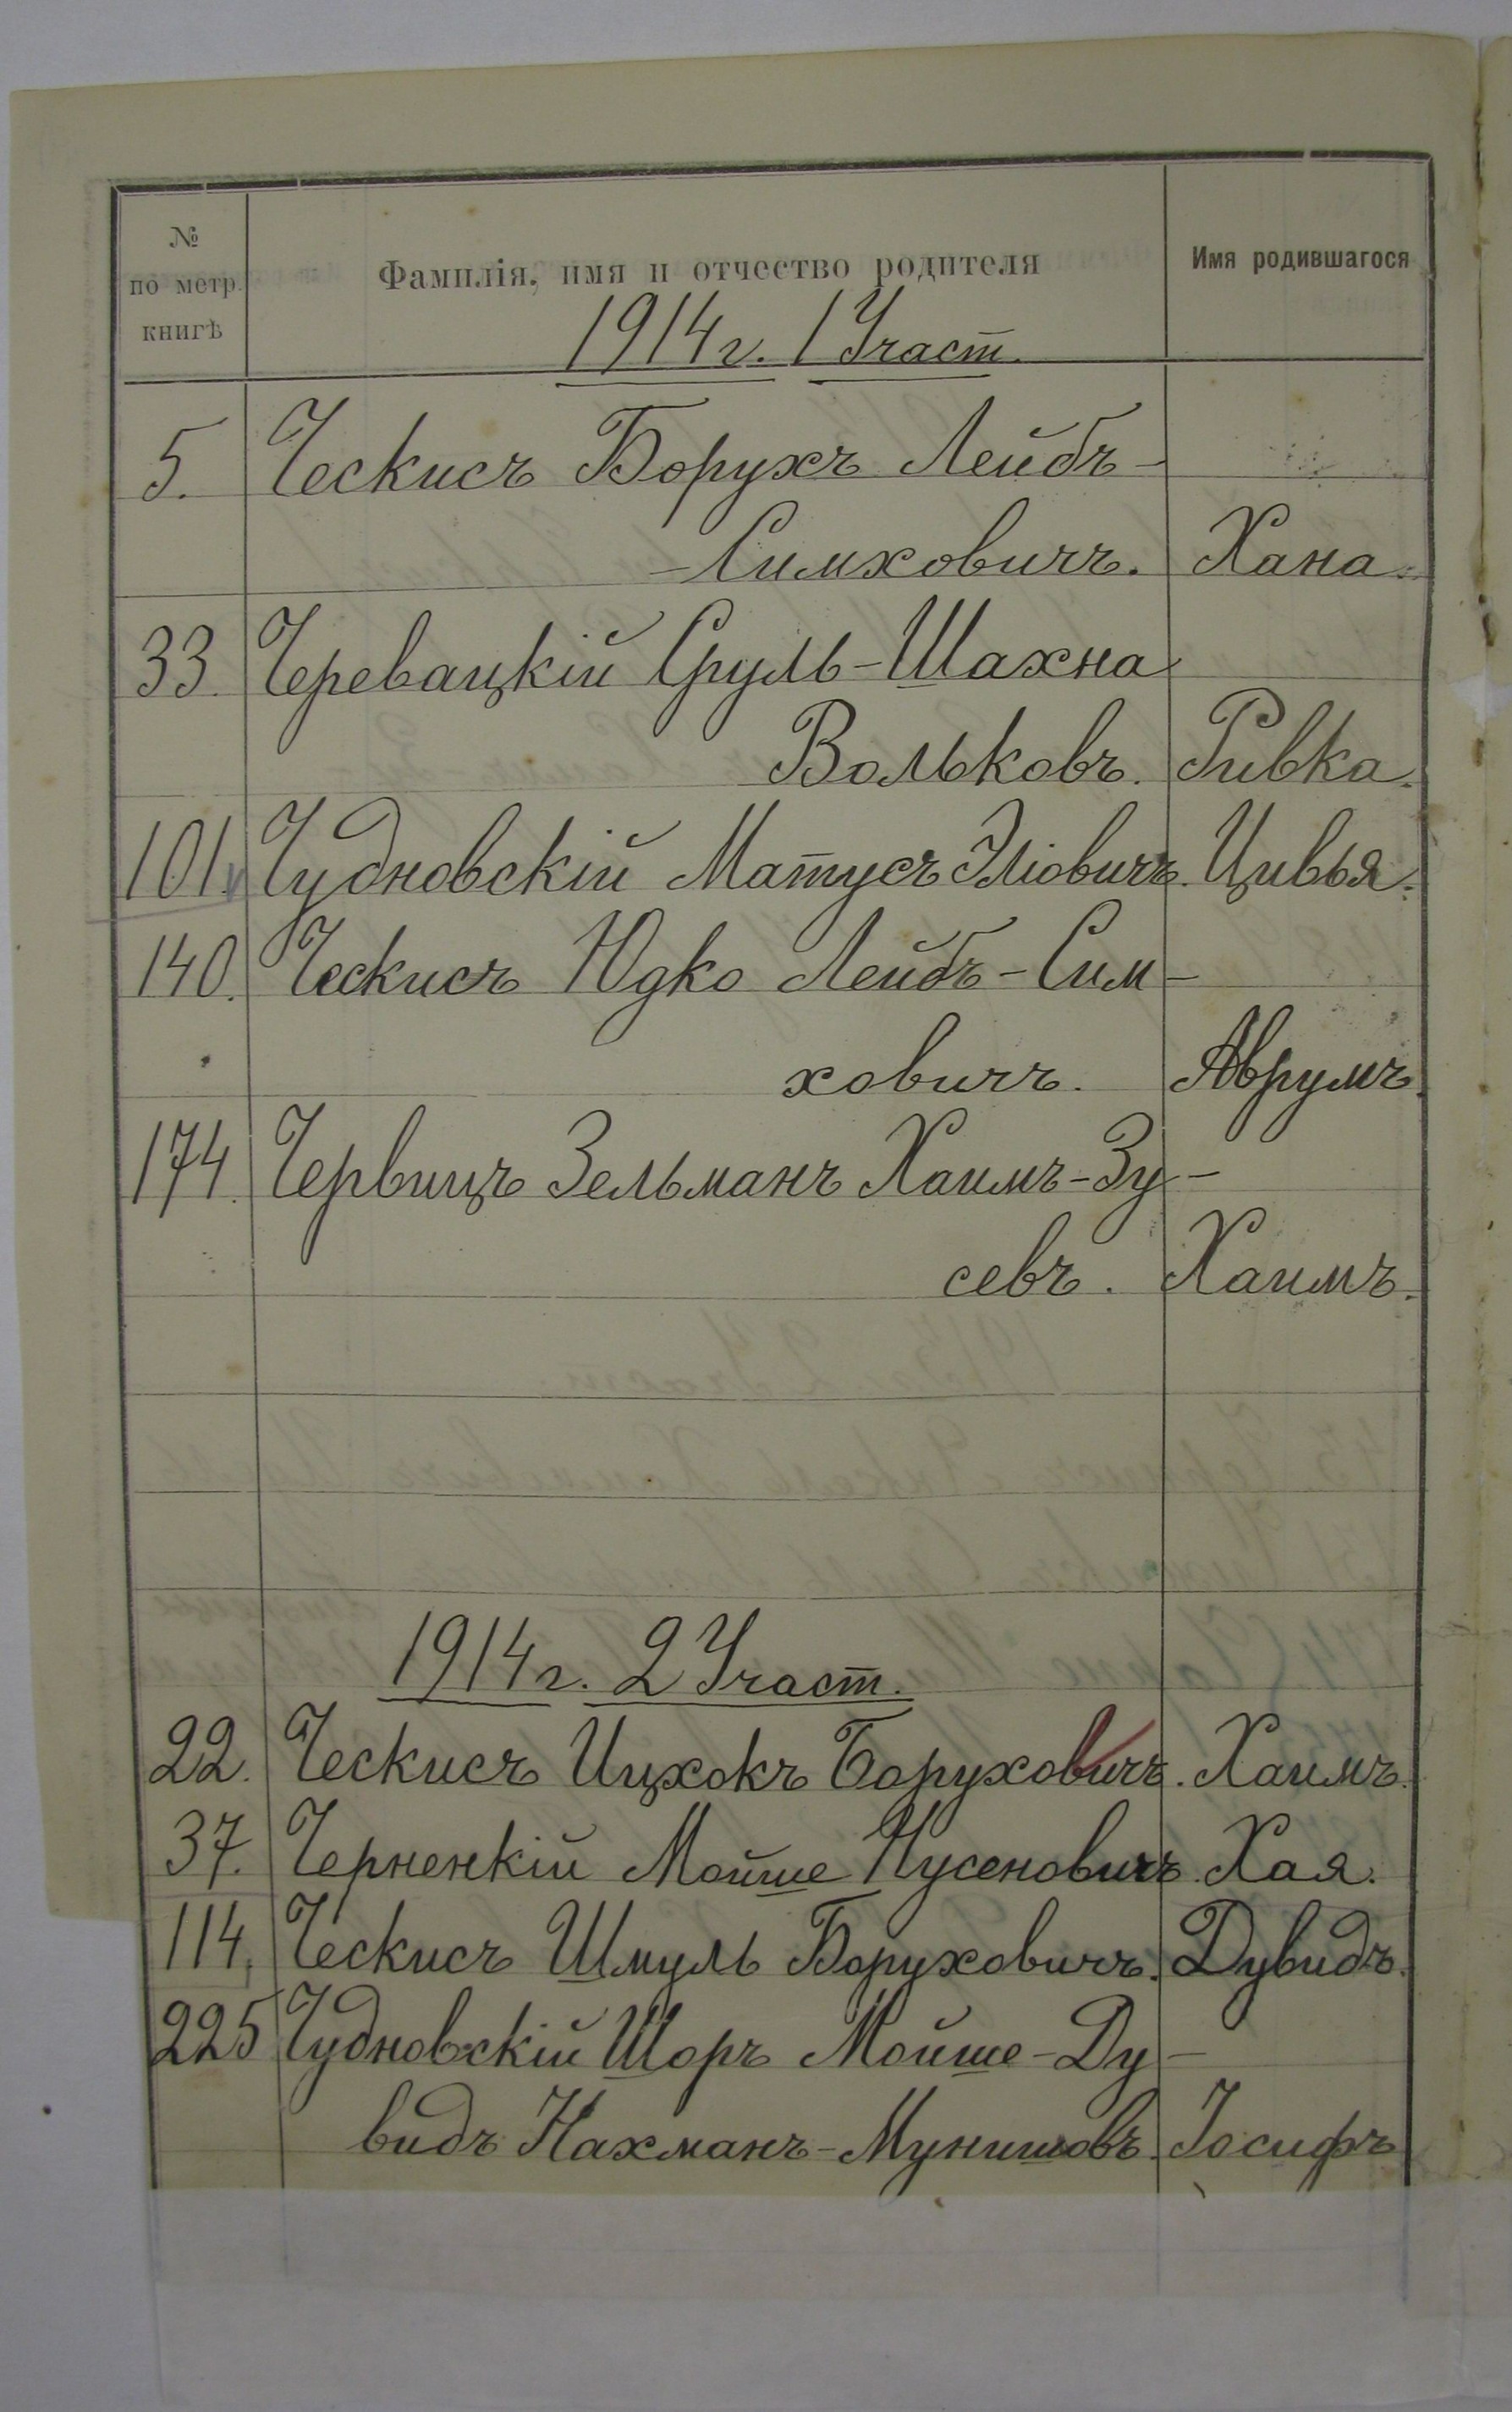 №
по метр.
книгѣ
Фамилія, имя и отчество родителя
Имя родившагося
1914 г. 1 Участ.
5. Ческисъ Борухъ Лейбъ-
-Симховичъ. Хана.
33. Черевацкій Сруль-Шахна
Вольковъ. Ривка.
101. Чудновскій Матусъ Эліовичъ. Цивья.
140. Ческисъ Юдко Лейбъ-Сим-
ховичъ. Аврумъ.
174. Червицъ Зельманъ Хаимъ-Зу-
севъ. Хаимъ.
1914 г. 2 Участ.
22. Ческисъ Ицхокъ Боруховичъ. Хаимъ.
37. Черненкій Мойше Нусеновичъ. Хая.
114. Ческисъ Шмуль Боруховичъ. Дувидъ.
225 Чудновскій Шоръ Мойше-Ду-
видъ Нахманъ-Мунишовъ. Іосифъ